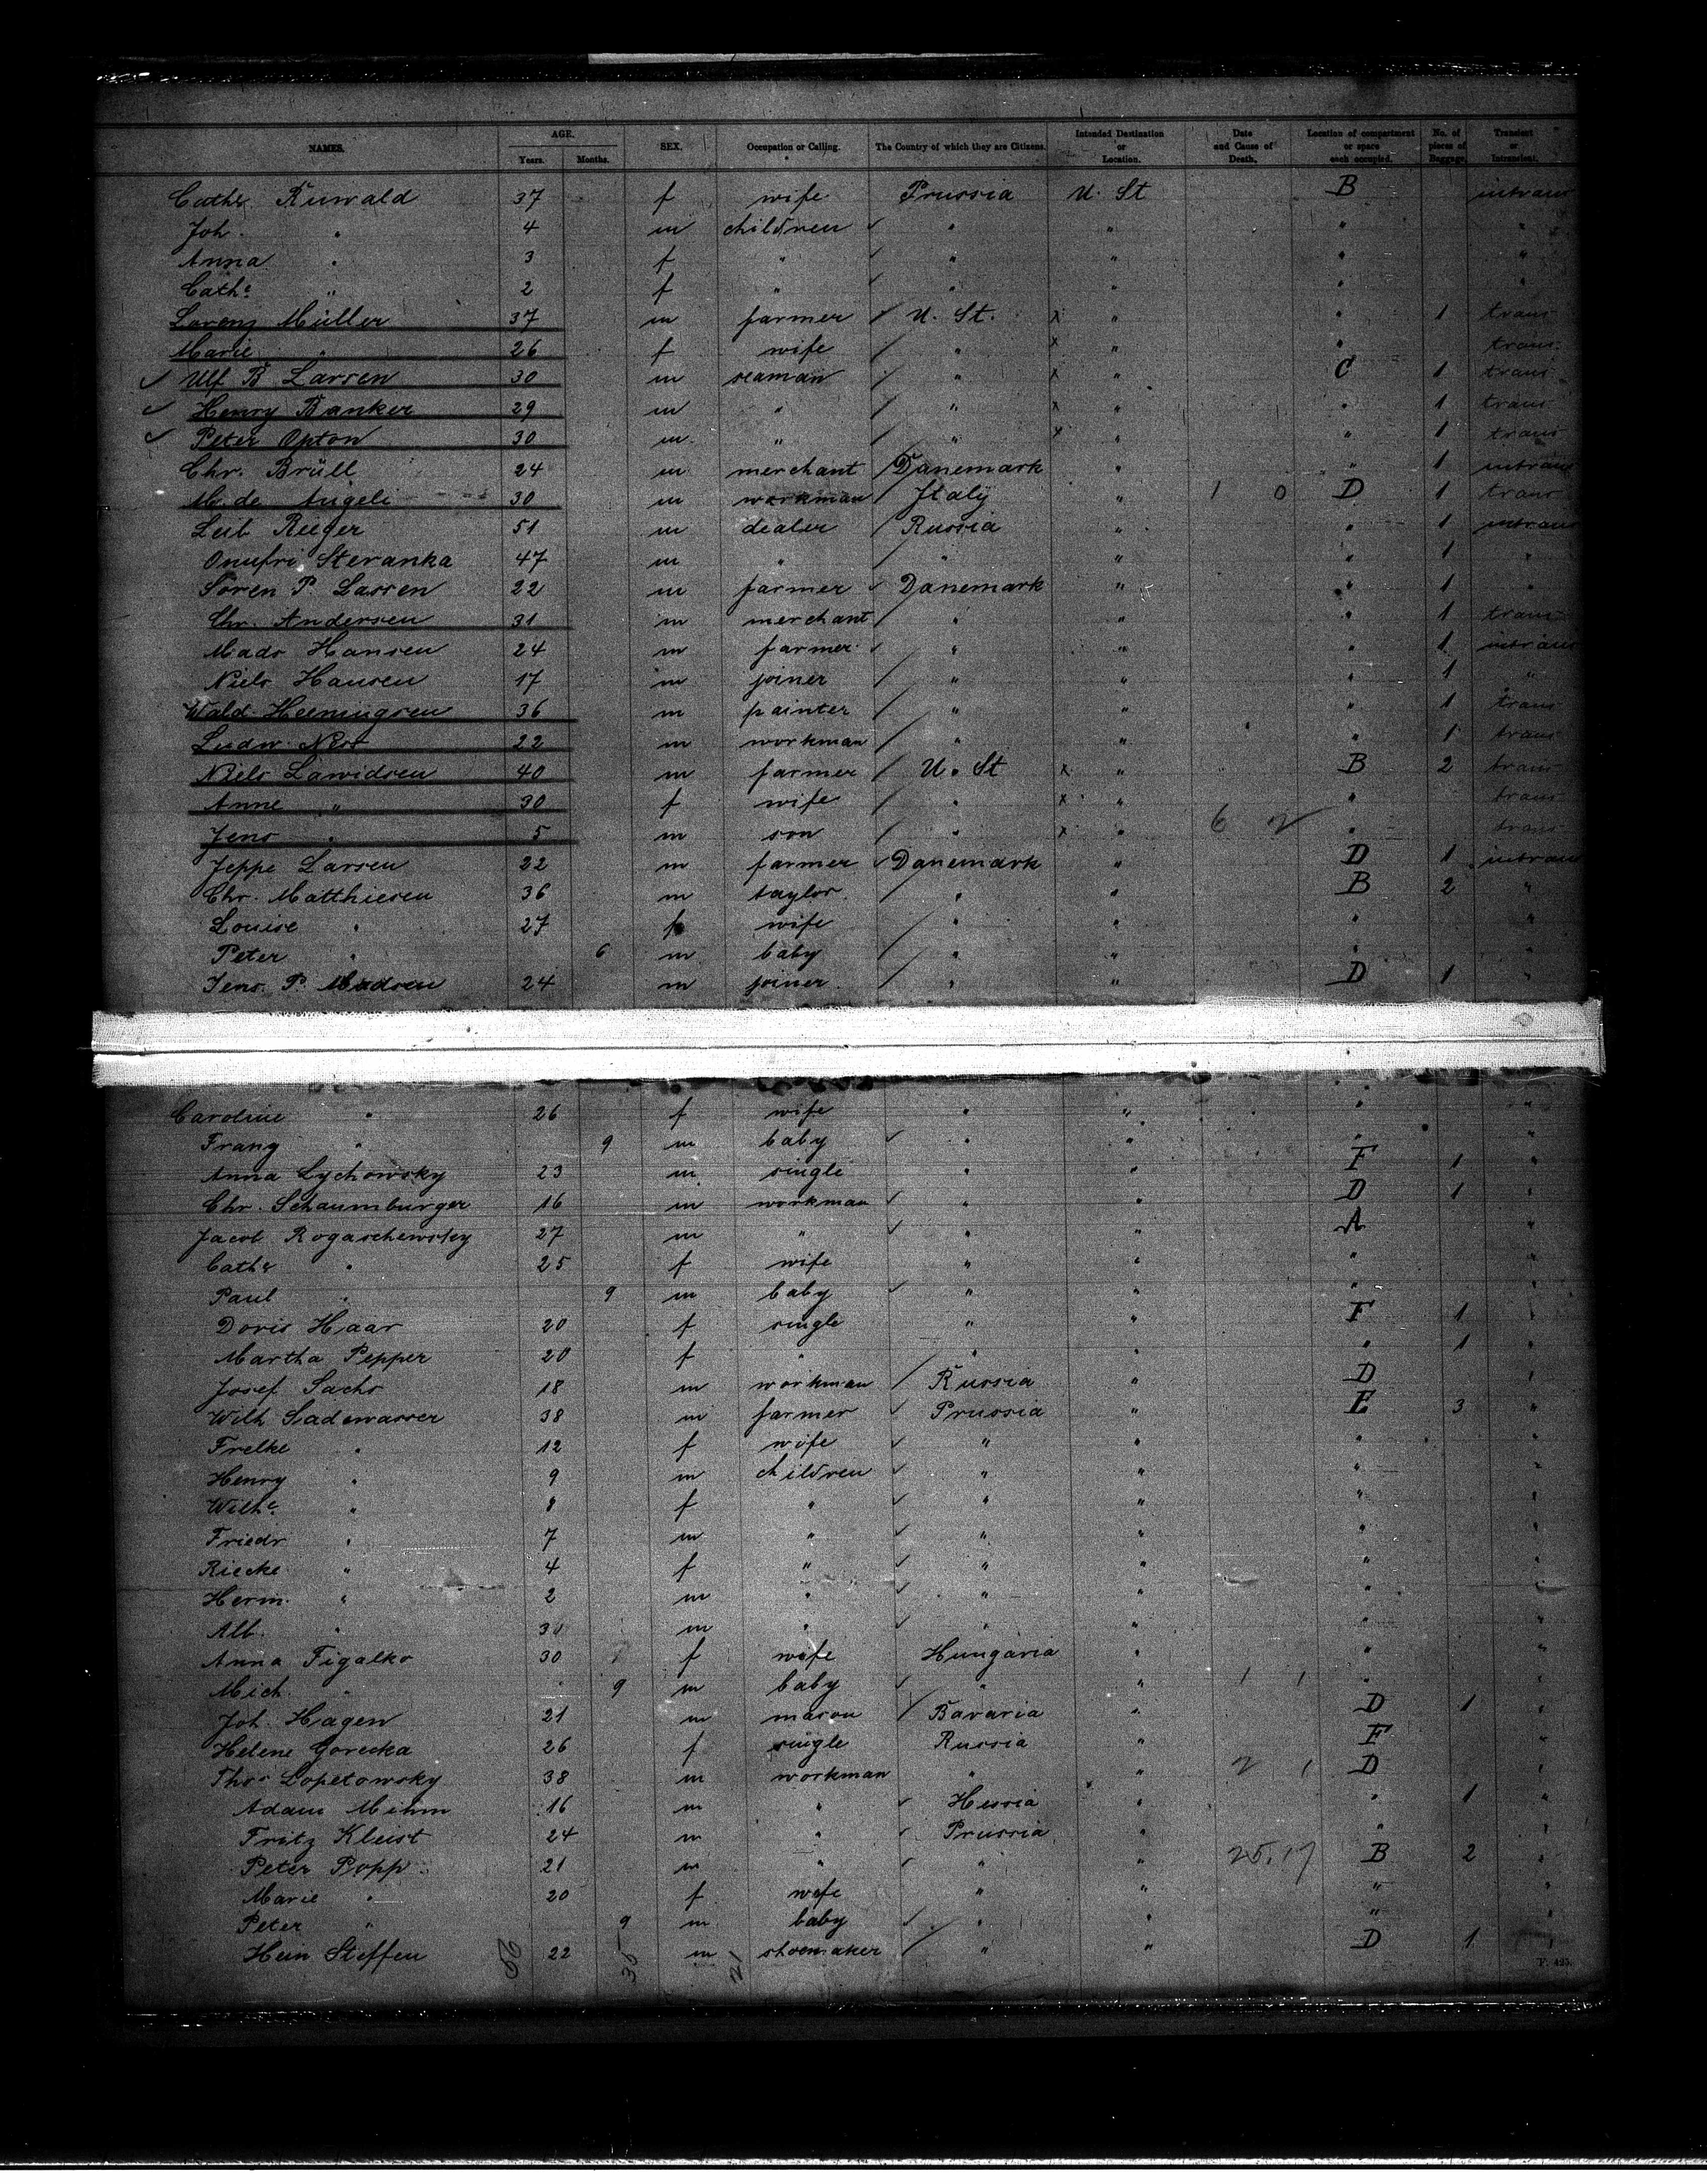 NAMES. AGE. Years. Months. SEX. Occupation or Calling. The Country of which they are Citizens. Intended Destination or Location. Date and Cause of Death. Location of compartment or space each occupied. No. of pieces of Baggage. Transient or Intransient.
Cathe Kuwald 37 f wife Prussia U. St B intrans
Joh. " 4 m children " " " "
Anna " 3 f " " " " "
Cathe " 2 f " " " " "
Lorenz Müller 37 m farmer U. St. x " " 1 trans
Marie " 26 f wife " x " " trans
Ulf B Larsen 30 m seaman " x " C 1 trans
Henry Banker 29 m " " x " " 1 trans
Peter Opton 30 m " " x " " 1 trans
Chr. Brüll 24 m merchant Danemark " " 1 intrans
M. de Angeli 30 m workman Italÿ " 1 0 D 1 trans
Leib Reeger 51 m dealer Russia " " 1 intrans
Onufri Steranka 47 m " " " " 1 "
Sören P. Larsen 22 m farmer Danemark " " 1 "
Chr. Andersen 31 m merchant " " " 1 trans
Mads Hansen 24 m farmer " " " 1 intrans
Niels Hansen 17 m joiner " " " 1 "
Wald. Hemingsen 36 m painter " " " 1 trans
Ludw. 22 m workman " " " 1 trans
Niels Lawidsen 40 m farmer U. St x " B 2 trans
Anne " 30 f wife " x " " trans
Jens " 5 m son " x " 6 2 " trans
Jeppe Larsen 22 m farmer Danemark " D 1 intrans
Chr. Matthiesen 36 m taylor " " B 2 "
Louise " 27 f wife " " " "
Peter " 6 m baby " " " "
Jens. P. Madsen 24 m joiner " " D 1 "
Caroline " 26 f wife " " " "
Franz " 9 m baby " " " "
Anna Lychowsky 23 m single " " F 1 "
Chr. Schaumburger 16 m workman " " D 1 "
Jacob Rogaschewsky 27 m " " " A "
Cathe " 25 f wife " " " "
Paul " 9 m baby " " " "
Doris Haar 20 f single " " F 1 "
Martha Pepper 20 f " " " " 1 "
Josef Sachs 18 m workman Russia " D "
Wilh Sadewasser 38 m farmer Prussia " E 3 "
Frelke " 12 f wife " " " "
Henry " 9 m children " " " "
Wilhe " 8 f " " " " "
Friedr " 7 m " " " " "
Riecke " 4 f " " " " "
Herm. " 2 m " " " " "
Alb. " m " " " " "
Anna Figalko 30 f wife Hungaria " " "
Mich. " 9 m baby " " 1 1 " "
Joh. Hagen 21 m mason Bavaria " D 1 "
Helene Gorecka 26 f single Russia " F "
Thos Lopetowsky 38 m workman " " 2 1 D "
Adam Mihm 16 m " Hessia " " 1 "
Fritz Kleist 24 m " Prussia " " "
Peter Popp 21 m " " " 25, 17 B 2 "
Marie " 20 f wife " " " "
Peter " 9 m baby " " " "
Hein Steffen 22 m shoemaker " " D 1 "